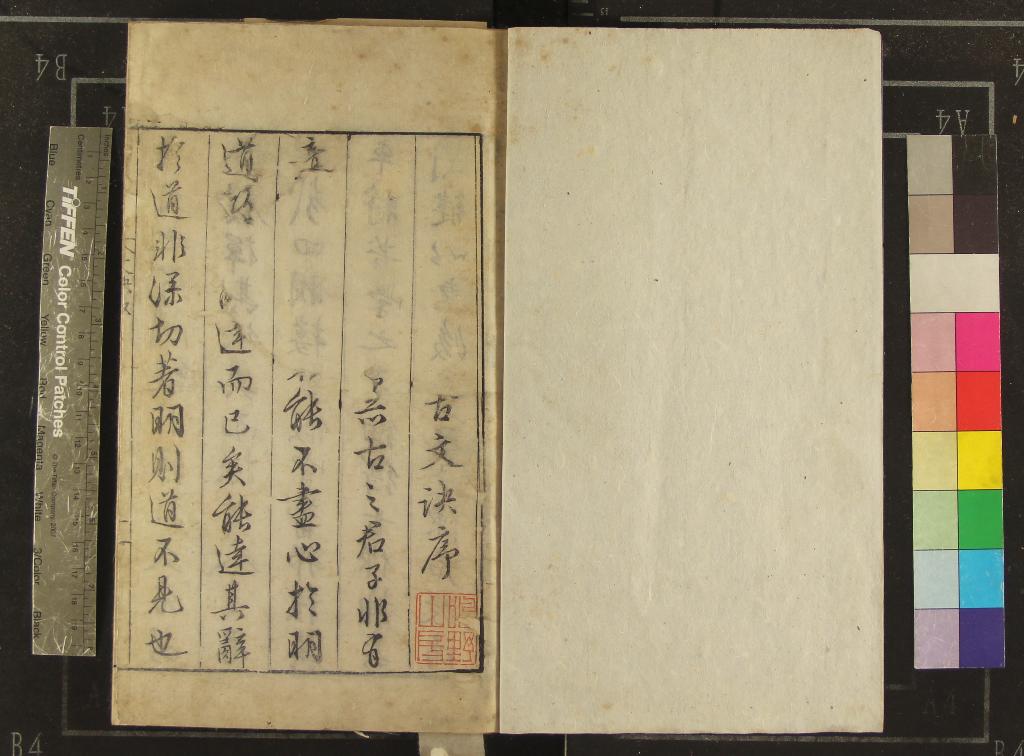 古文訣序
古之君子非有
意能不盡心於明
道達而已矣能達其辭
於道非深切著明則道不見也
TIFFEN Color Control Patches
Inches
Centimetres
Blue
Cyan
Green
Yellow
Red
Magenta
White
3/Color
Black
B4
A4
A4
B4